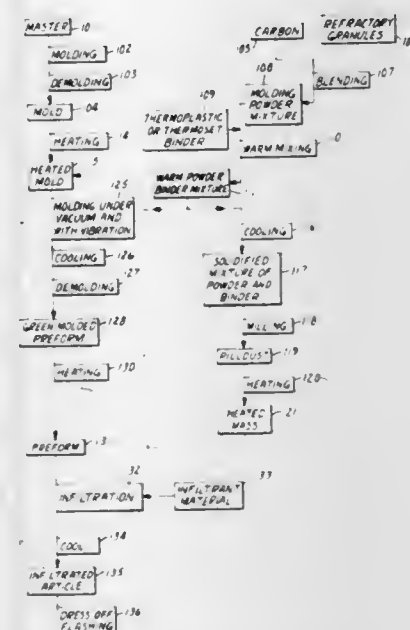 MASTER 10
MOLDING 102
DEMOLDING 103
MOLD 04
HEATING
HEATED
MOLD
125
MOLDING UNDER
VACUUM AND
WITH VIBRATION
COOLING 126
127
DEMOLDING
GREEN MOLDED 128
PREFORM
HEATING 130
PREFORM 13
32
INFILTRATION
33
INFILTRANT
MATERIAL
134
COOL
INFILTRATED 135
ARTICLE
DRESS OFF 136
FLASHING
CARBON
105
REFRACTORY
GRANULES 10
108
BLENDING 107
MOLDING
POWDER
MIXTURE
109
THERMOPLASTIC
OR THERMOSET
BINDER
WARM MIXING 0
WARM POWDER
BINDER MIXTURE
COOLING
SOLIDIFIED 117
MIXTURE OF
POWDER AND
BINDER
MILLING 118
PILLDUST 119
HEATING 120
HEATED 21
MASS